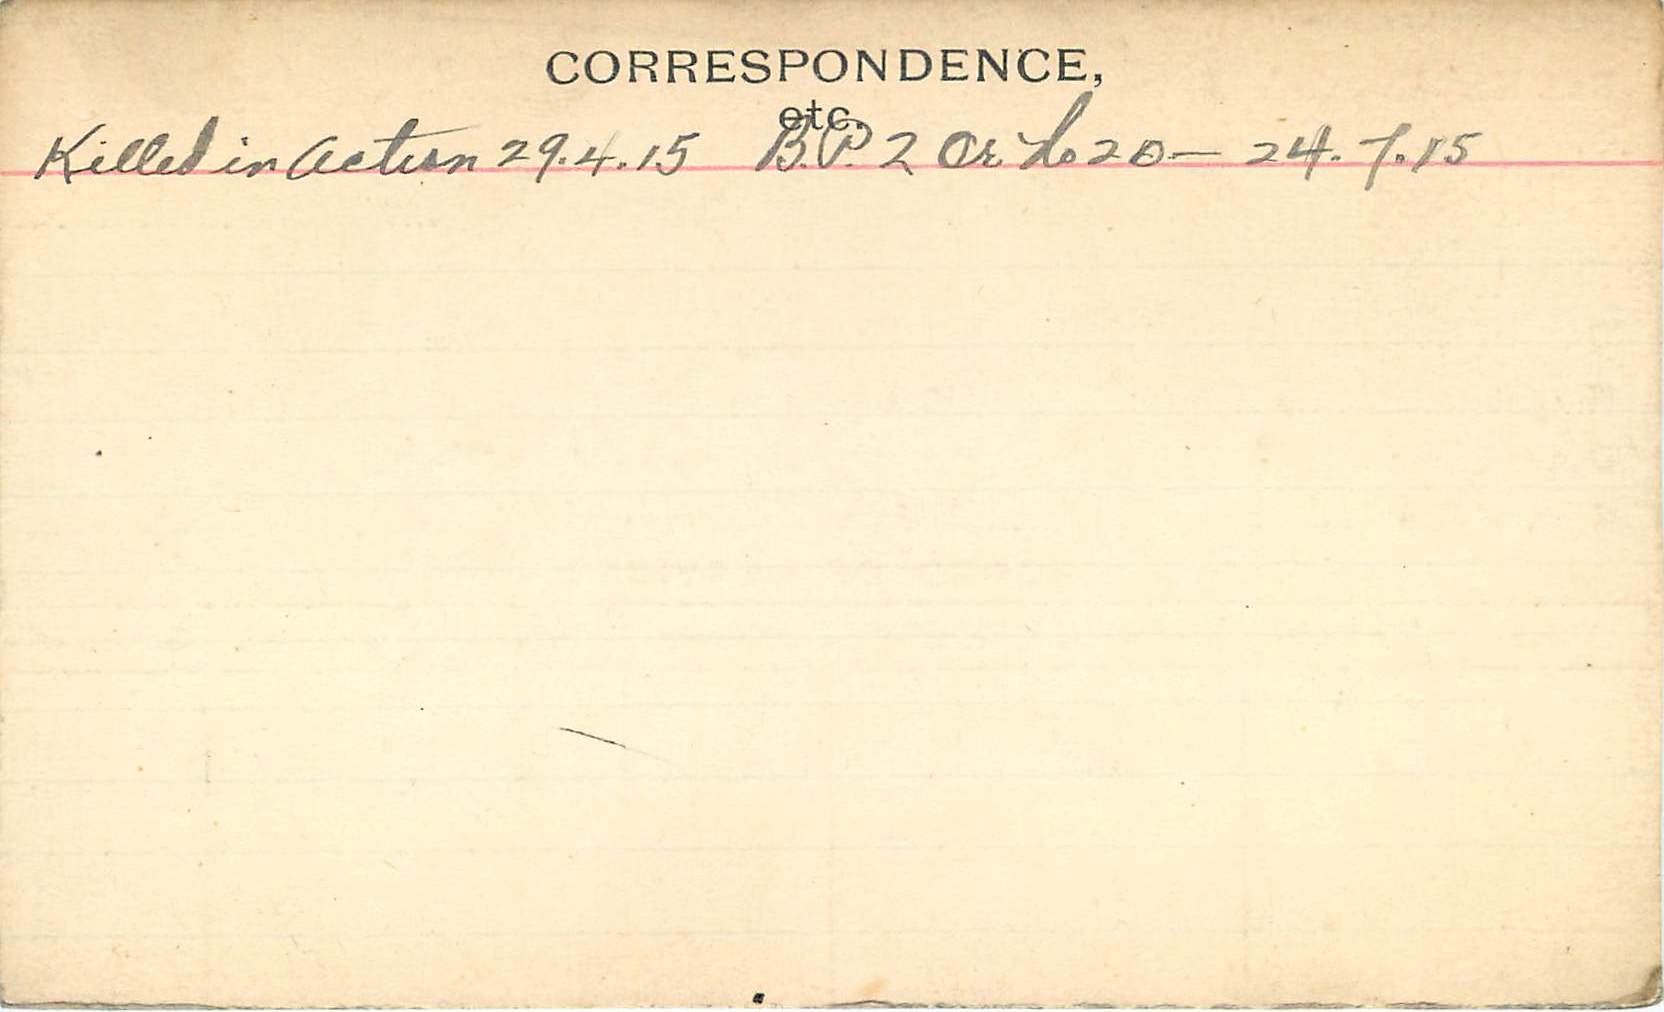 CORRESPONDENCE,
etc.
Killed in Action 29.4.15 B.P. 2 Or No 20— 24.7.15